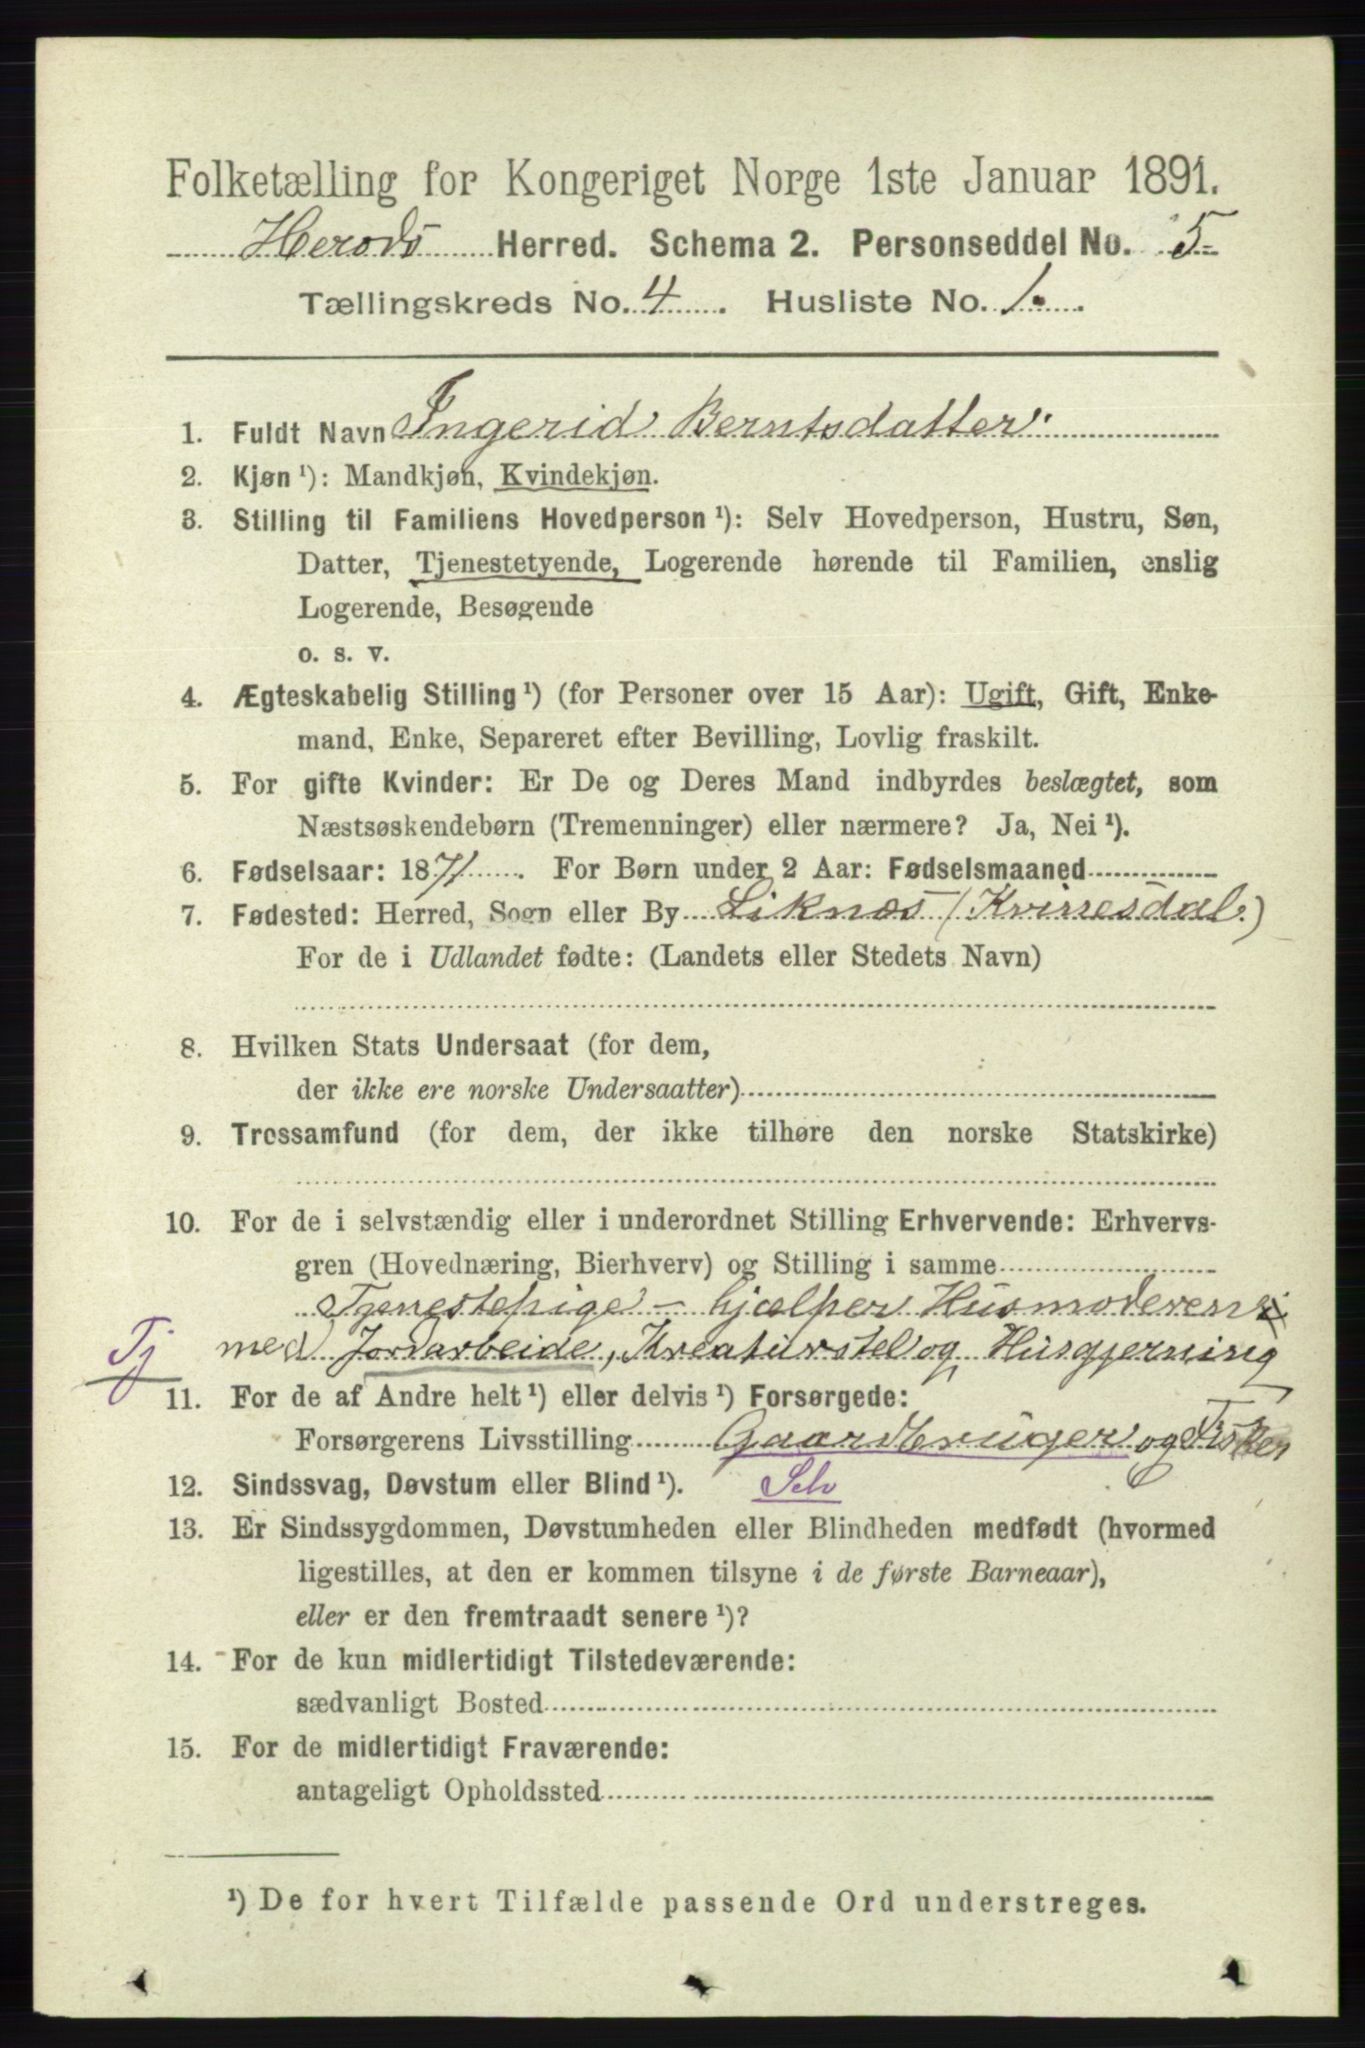 Folketælling for Kongeriget Norge 1ste Januar 1891.
Herods Herred. Schema 2. Personseddel No. 5
Tællingskreds No. 4. Husliste No. 1.
1. Fuldt Navn Ingerid Berntsdatter
2. Kjøn ¹): Mandkjøn, Kvindekjøn.
3. Stilling til Familiens Hovedperson ¹): Selv Hovedperson, Hustru, Søn,
Datter, Tjenestetyende, Logerende hørende til Familien, enslig
Logerende, Besøgende
o. s. v.
4. Ægteskabelig Stilling ¹) (for Personer over 15 Aar): Ugift, Gift, Enke-
mand, Enke, Separeret efter Bevilling, Lovlig fraskilt.
5. For gifte Kvinder: Er De og Deres Mand indbyrdes beslægtet, som
Næstsøskendebørn (Tremenninger) eller nærmere? Ja, Nei ¹).
6. Fødselsaar: 1871. For Børn under 2 Aar: Fødselsmaaned
7. Fødested: Herred, Sogn eller By Liknæs (Kvinesdal.)
For de i Udlandet fødte: (Landets eller Stedets Navn)
8. Hvilken Stats Undersaat (for dem,
der ikke ere norske Undersaatter)
9. Trossamfund (for dem, der ikke tilhøre den norske Statskirke)
10. For de i selvstændig eller i underordnet Stilling Erhvervende: Erhvervs-
gren (Hovednæring, Bierhverv) og Stilling i samme
Tjenestepige – hjælper Husmoderen
Tj med Jordarbeide, Kreaturstel og Husgjerning
11. For de af Andre helt ¹) eller delvis ¹) Forsørgede:
Forsørgerens Livsstilling Gaardbruger og Fisker
12. Sindssvag, Døvstum eller Blind ¹). Selv
13. Er Sindssygdommen, Døvstumheden eller Blindheden medfødt (hvormed
ligestilles, at den er kommen tilsyne i de første Barneaar),
eller er den fremtraadt senere ¹)?
14. For de kun midlertidigt Tilstedeværende:
sædvanligt Bosted
15. For de midlertidigt Fraværende:
antageligt Opholdssted
¹) De for hvert Tilfælde passende Ord understreges.